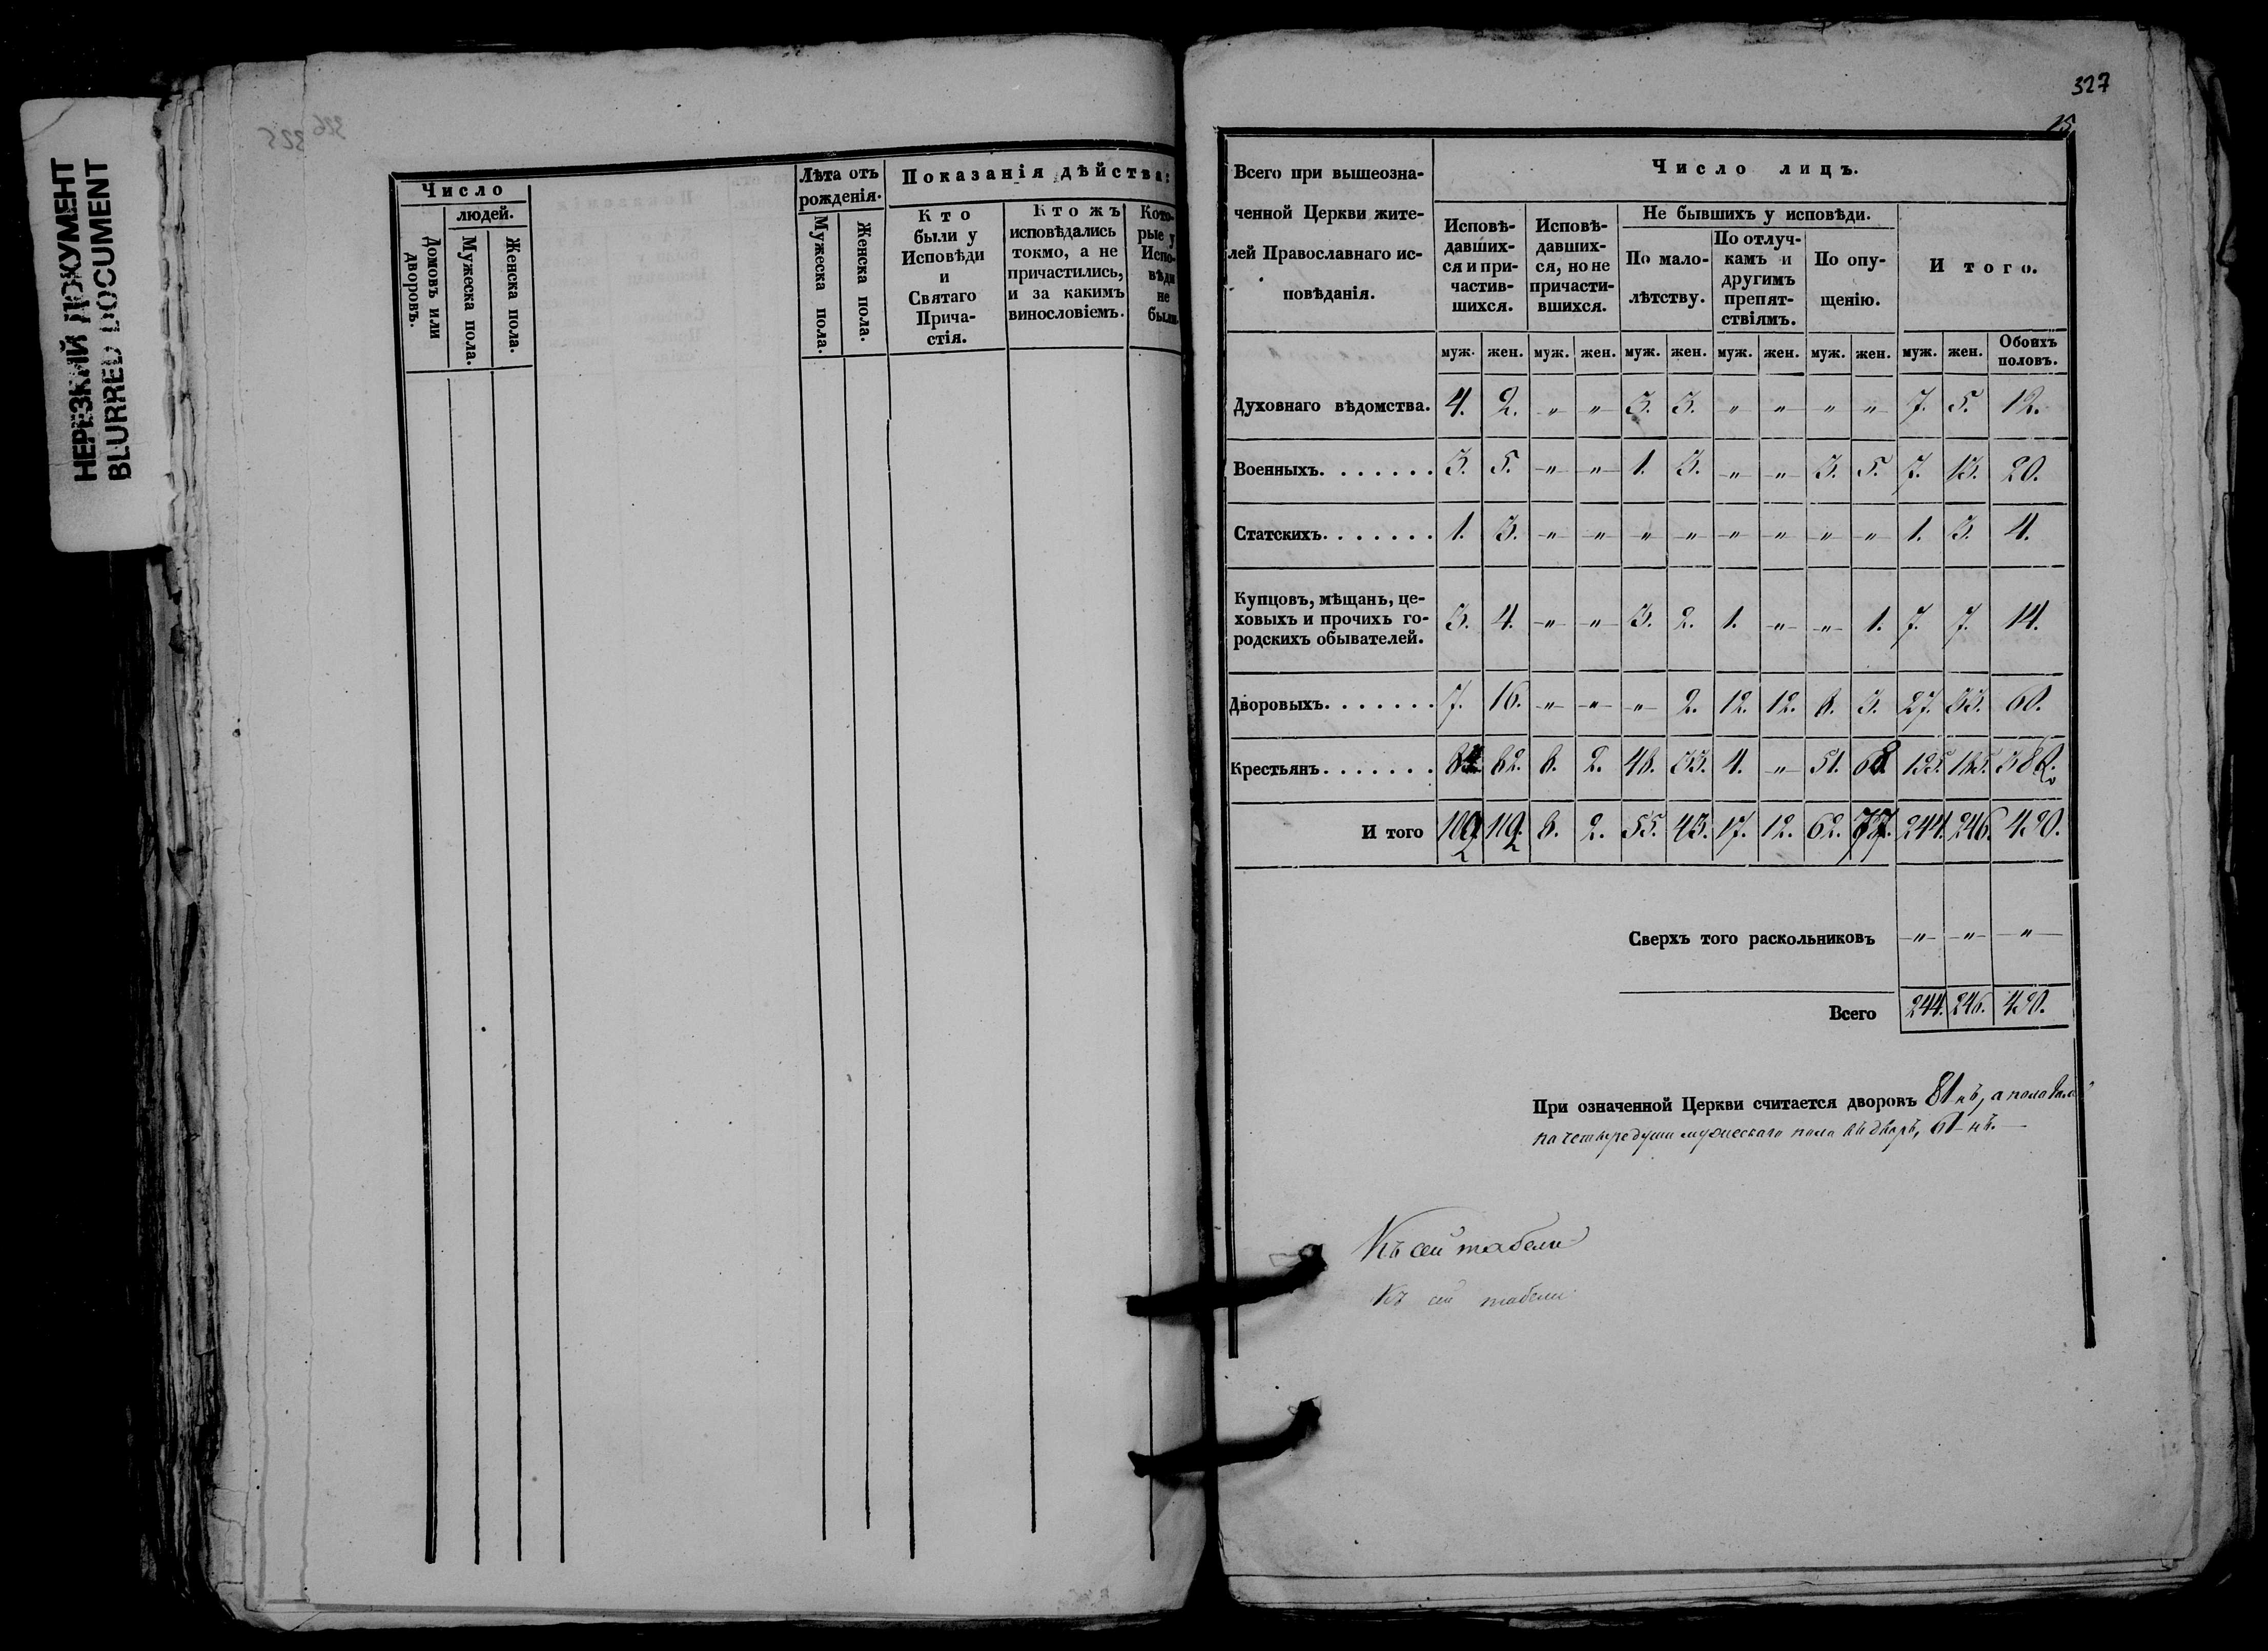 НЕРЕЗКИЙ ДОКУМЕНТ
BLURRED DOCUMENT
Число
людей.
Домовъ или дворовъ.
Мужеска пола.
Женска пола.
Лѣта отъ
рожденія.
Мужеска пола.
Женска пола.
Показанія дѣйства:
Кто
были у
Исповѣди
и
Святаго
Прича-
стія.
Ктожъ
исповѣдались
токмо, а не
причастились,
и за какимъ
винословіемъ.
Кото-
рые у
Испо-
вѣди
не
были.
327
Всего при вышеозна-
ченной Церкви жите-
лей Православнаго ис-
повѣданія.
Число лицъ.
Исповѣ-
давших-
ся и при-
частив-
шихся.
Исповѣ-
давших-
ся, но не
причасти-
вшихся.
Не бывшихъ у исповѣди.
По мало-
лѣтству.
По отлуч-
камъ и
другимъ
препят-
ствіямъ.
По опу-
щенію.
Итого.
муж. жен. муж. жен. муж. жен. муж. жен. муж. жен. муж. жен. Обоихъ половъ.
Духовнаго вѣдомства. 4. 2. „ „ 3. 3. „ „ „ „ 7. 5. 12.
Военныхъ. . . . . . . 3. 5. „ „ 1. 3. „ „ 3. 5. 7. 13. 20.
Статскихъ. . . . . . . 1. 3. „ „ „ „ „ „ „ „ 1. 3. 4.
Купцовъ, мѣщанъ, це-
ховыхъ и прочихъ го-
родскихъ обывателей. 3. 4. „ „ 3. 2. 1. „ „ 1. 7. 7. 14.
Дворовыхъ. . . . . . . 7. 16. „ „ „ 2. 12. 12. 8. 3. 27. 33. 60.
Крестьянъ. . . . . . . 2. 48. 33. 4. „ 51. 68. 195. 185. 380.
И того 109. 119. 8. 2. 55. 43. 17. 12. 62. 77. 244. 246. 490.
Сверхъ того раскольниковъ „ „ „
Всего 244. 246. 490.
При означенной Церкви считается дворовъ 81 нъ, а полагая
по четыре души мужескаго пола въ дворѣ, 61 нъ.
Къ сей табели
Къ сей табели